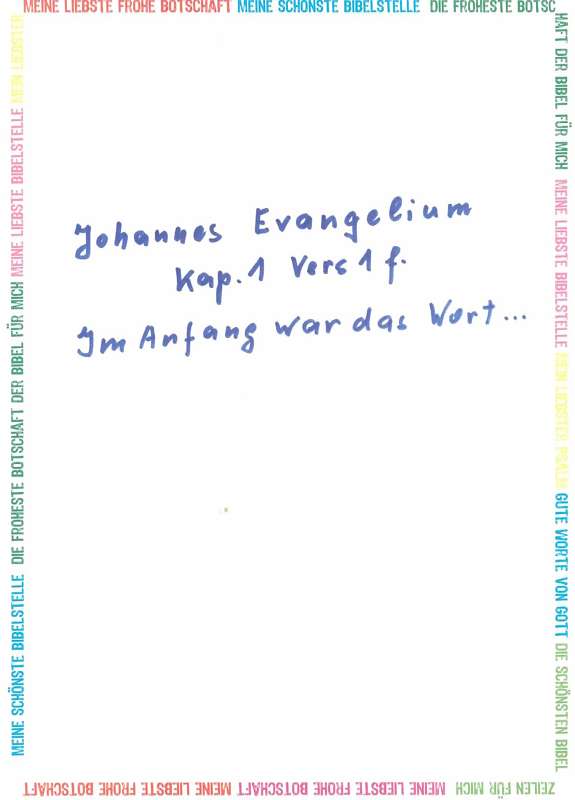 MEINE LIEBSTE FROHE BOTSCHAFT MEINE SCHÖNSTE BIBELSTELLE DIE FROHESTE BOTSC
HAFT DER BIBEL FÜR MICH MEINE LIEBSTE BIBELSTELLE MEIN LIEBSTER PSALM GUTE WORTE VON GOTT DIE SCHÖNSTEN BIBEL
ZEILEN FÜR MICH MEINE LIEBSTE FROHE BOTSCHAFT MEINE LIEBSTE FROHE BOTSCHAFT
MEINE SCHÖNSTE BIBELSTELLE DIE FROHESTE BOTSCHAFT DER BIBEL FÜR MICH MEINE LIEBSTE BIBELSTELLE MEIN LIEBSTER
Johannes Evangelium
Kap. 1 Vers 1 f.
Im Anfang war das Wort...